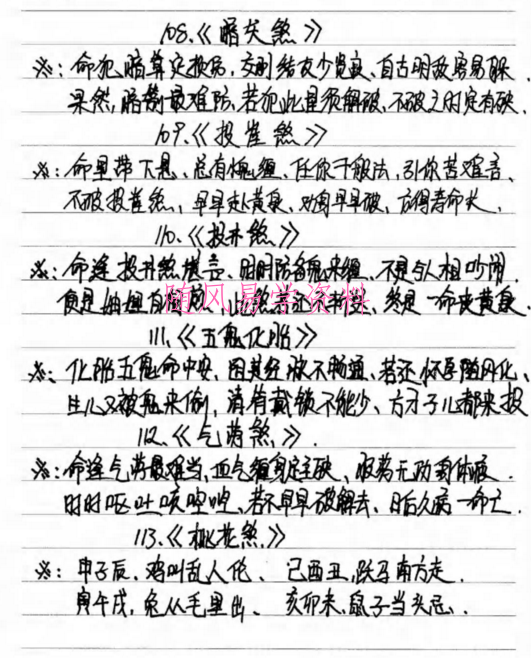 108.《暗灾煞》
※：命犯暗算定损伤，交朋结友少，自古明敌容易躲，
果然，暗箭最难防，若犯此星须解破，不破之时定有破
109.《投崖煞》
※：命里带下悬、总有愧缠、任你千般法，引你苦难言，
不破投崖煞，早早赴黄泉、对闰早早破、方得寿命长，
110.《投井煞》
※：命逢投井煞、时时防备鬼来缠、不是与人相吵闹，
便是，此煞若还不，终是一命丧黄泉
随风易学资料
111.《五鬼化胎》
※：化胎五鬼命中安、因其经脉不畅通、若还怀孕随风化、
生儿又被鬼来偷，清有栽锁不能少、方才子儿都来投
112.《气满煞》.
※：命逢气满最难当、血气缠身、服药无功气体瘦.
时时呕吐咳，若不早早破解去、日后久病一命亡.
113.《桃花煞》
※：申子辰，鸡叫乱人伦、己酉丑，跃马南方走.
寅午戌，兔从毛里出、亥卯未，鼠子当头忌.